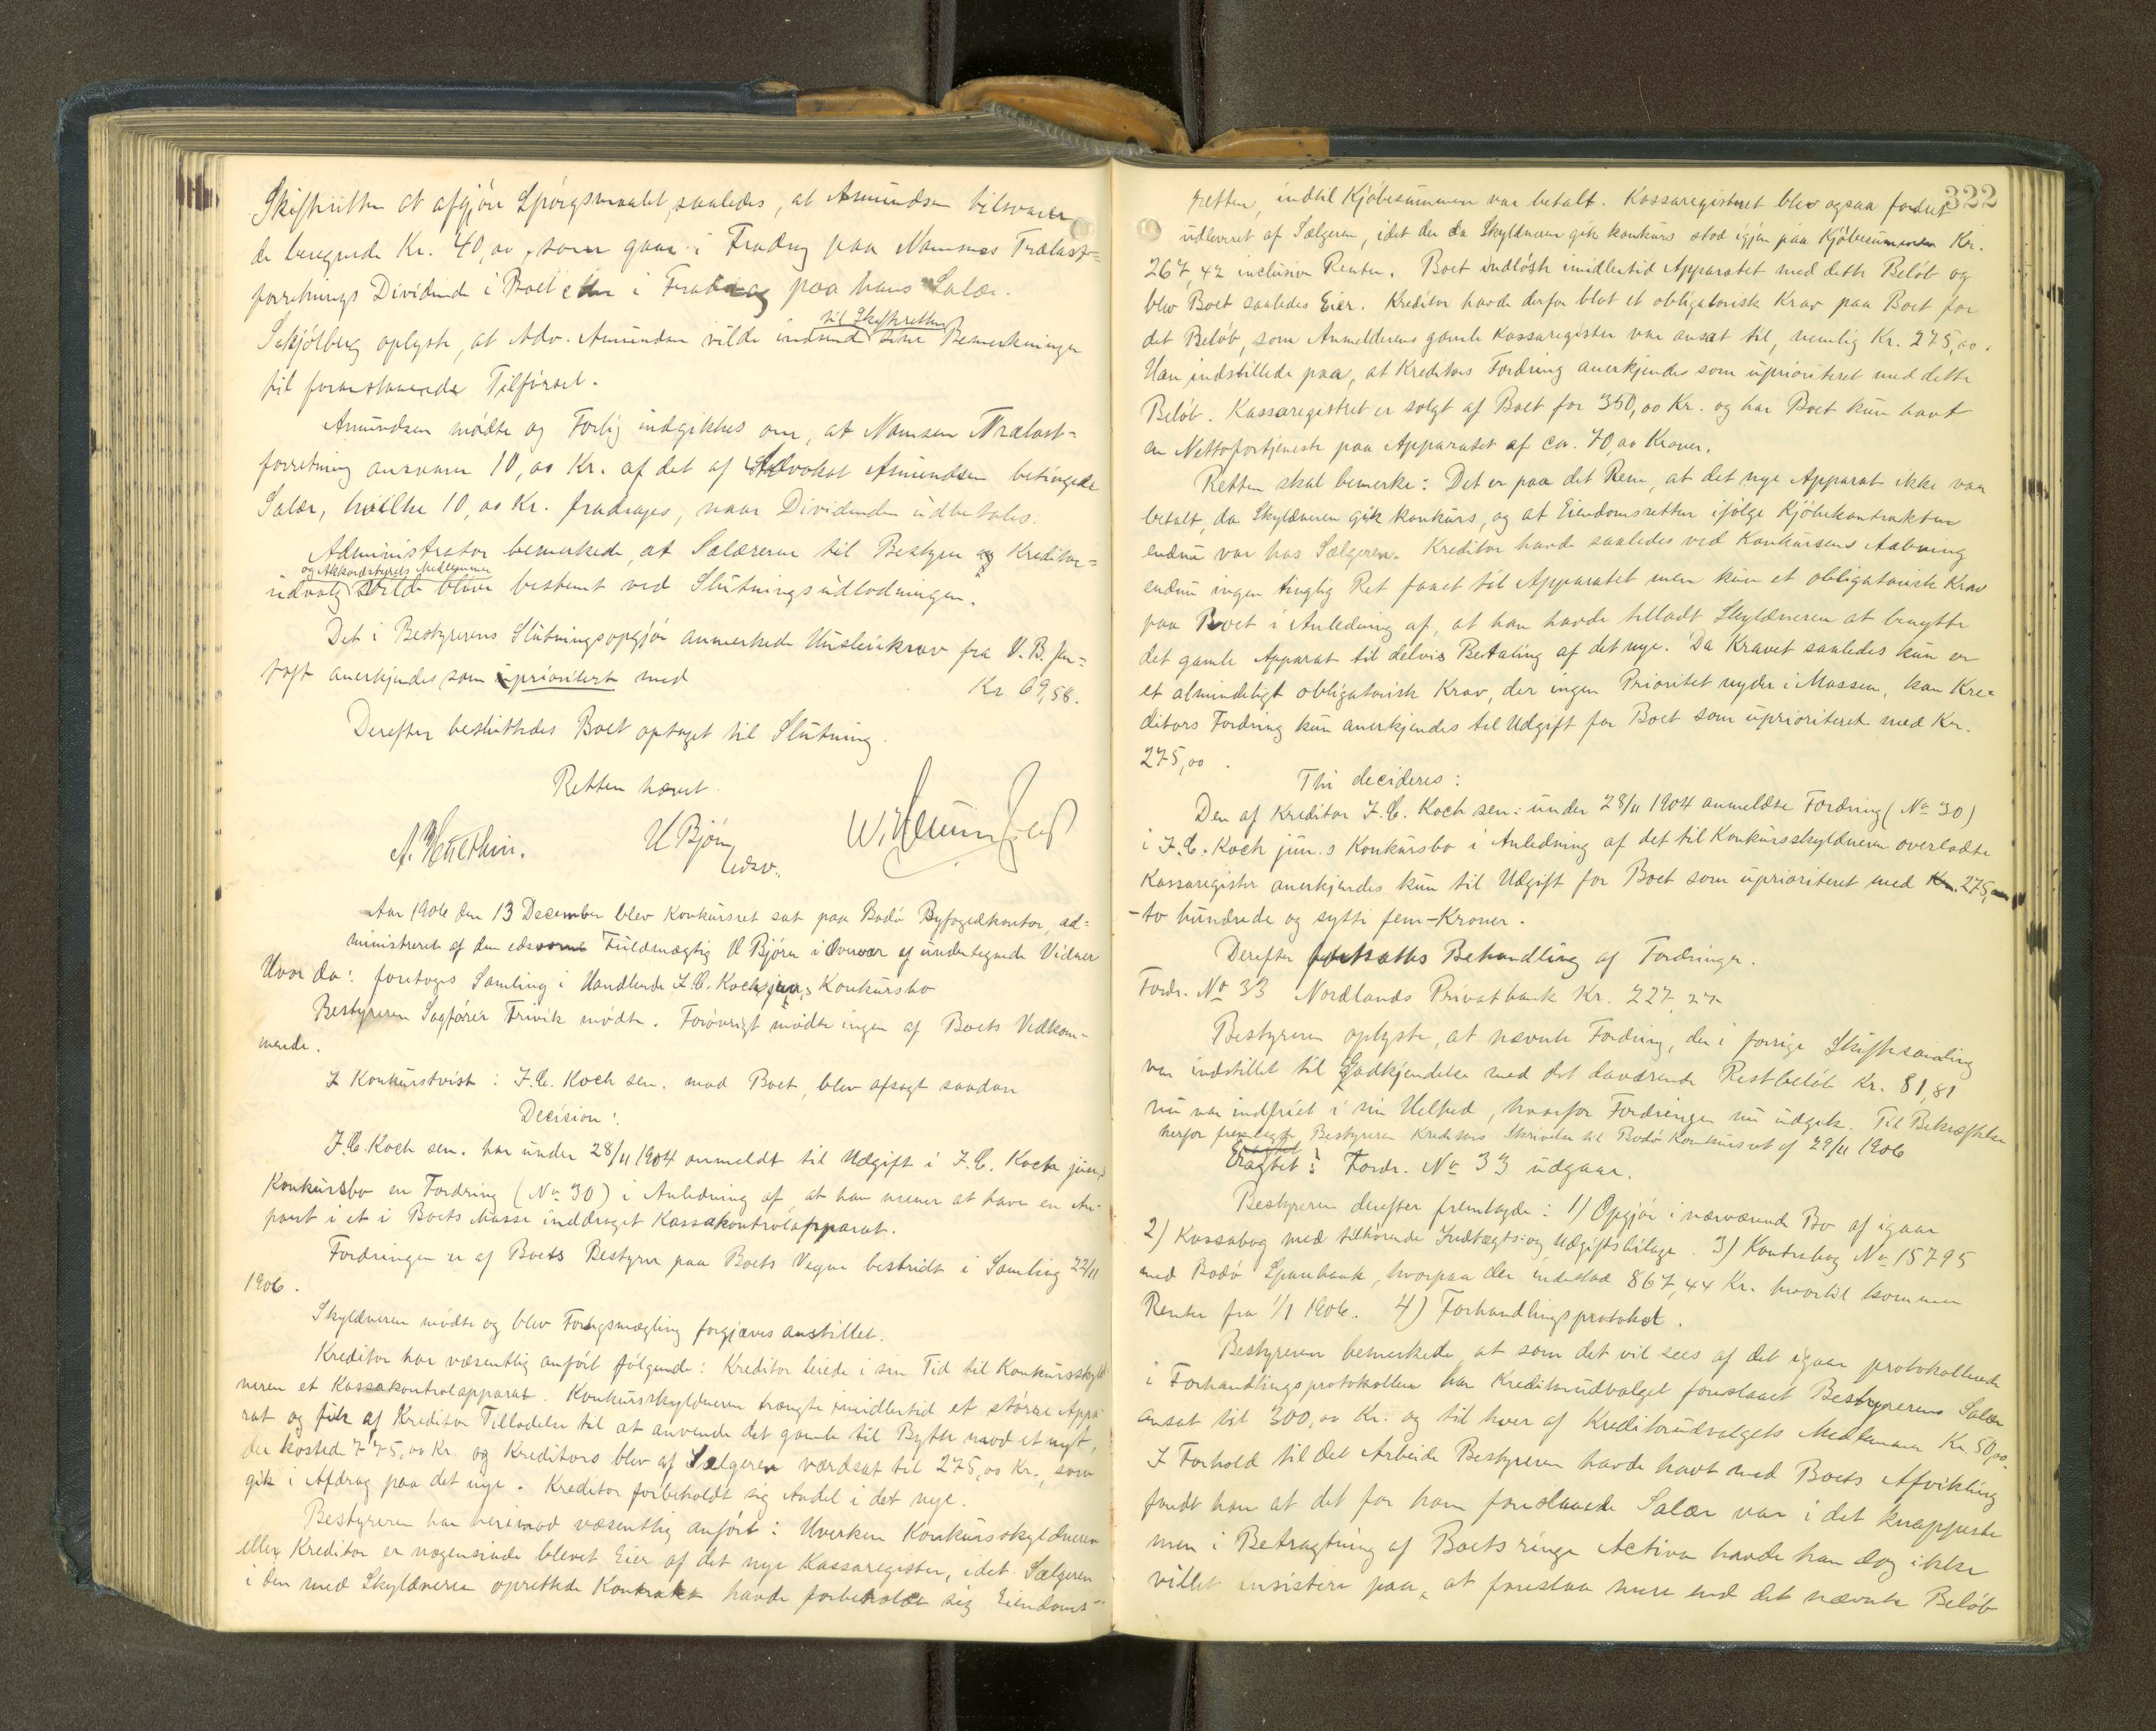 Skifteretten at afgjöre Spörgsmaalet saaledes, at Amundsen tilsvarer
de beregnede Kr. 40,00, som gaar i Fradrag paa Namsens Trælast=
forretnings Dividende i Boet eller i Fradrag paa hans Salær.
til Skifteretten
Skjölberg oplyste, at Adv. Amundsen vilde indsende sine Bemerkninger
til foranstaaende Tilförsel.
Amundsen mödte og Forlig indgikkes om, at Namsen Trælast=
forretning ansvarer 10,00 Kr. af det af Advokat Amundsen betingede
Salær, hvilke 10,00 Kr. fradrages, naar Dividenden udbetales.
Administrator bemerkede, at Salærerne til Bestyrer og Kreditor=
og Akkordstyrets Medlemmer
udvalg vilde blive bestemt ved Slutningsudlodningen.
Det i Bestyrerens Slutningsopgjör anmerkede Husleiekrav fra H. B. Jen=
toft anerkjendes som uprioritert med Kr. 69,58.
Derefter besluttedes Boet optaget til Slutning.
Retten hævet.
U Björe
edsv.
Aar 1906 den 13 December blev Konkursret sat paa Bodö Byfogedkontor, ad=
ministreret af den edsvorne Fuldmægtig U Björe i Overvær af undertegnede Vidner
Hvor da: foretoges Samling i Handlende J. C. Koch jun.s Konkursbo
Bestyreren Sagförer Trivik mödte. Forövrigt mödte ingen af Boets Vedkom-
mende.
I Konkurstvist: J. C. Koch sen. mod Boet, blev afsagt saadan
Decision:
J. C. Koch sen. har under 28/11 1904 anmeldt til Udgift i J. C. Koch jun.s
Konkursbo en Fordring (No 30) i Anledning af at han mener at have en An-
part i et i Boets Masse inddraget Kassakontrolapparat.
Fordringen er af Boets Bestyrer paa Boets Vegne bestridt i Samling 22/11
1906.
Skyldneren mödte og blev Forligsmægling forgjæves anstillet.
Kreditor har væsentlig anfört fölgende: Kreditor leiede i sin Tid til Konkursskyld
neren et Kassakontrolapparat. Konkursskyldneren trængte imidlertid et större Appa
rat og fik af Kreditor Tilladelse til at anvende det gamle til Bytte mod et nyt,
der kostede 775,00 Kr. og Kreditors blev af Sælgeren værdsat til 275,00 Kr., som
gik i Afdrag paa det nye. Kreditor forbeholdt sig Andel i det nye.
Bestyreren har herimod væsentlig anfört: Hverken Konkursskyldneren
eller Kreditor er nogensinde blevet Eier af det nye Kassaregister, idet Sælgeren
i den med Skyldneren oprettede Kontrakt havde forbeholdt sig Eiendoms-
322
retten, indtil Kjöbesummen var betalt. Kassaregistret blev ogsaa fordret
udleveret af Sælgeren, idet der da Skyldneren gik konkurs stod igjen paa Kjöbesummen Kr.
267,42 inclusive Renter. Boet indlöste imidlertid Apparatet med dette Belöb og
blev Boet saaledes Eier. Kreditor havde derfor blot et obligatorisk Krav paa Boet for
det Belöb, som Anmelderens gamle Kassaregister var ansat til, nemlig Kr. 275,00.
Han indstillede paa, at Kreditors Fordring anerkjendes som uprioriteret med dette
Belöb. Kassaregistret er solgt af Boet for 350,00 Kr. og har Boet kun havt
en Nettofortjeneste paa Apparatet af ca. 70,00 Kroner.
Retten skal bemerke: Det er paa det Rene, at det nye Apparat ikke var
betalt, da Skyldneren gik konkurs, og at Eiendomsretten ifölge Kjöbekontrakten
endnu var hos Sælgeren. Kreditor havde saaledes ved Konkursens Aabning
endnu ingen tinglig Ret faaet til Apparatet men kun et obligatorisk Krav
paa Boet i Anledning af, at han havde tilladt Skyldneren at benytte
det gamle Apparat til delvis Betaling af det nye. Da Kravet saaledes kun er
et almindeligt obligatorisk Krav, der ingen Prioritet nyder i Massen, kan Kre=
ditors Fordring kun anerkjendes til Udgift for Boet som uprioriteret med Kr.
275,00.
Thi decideres:
Den af Kreditor J. C. Koch sen: under 28/11 1904 anmeldte Fordring (No 30)
i J. C. Koch jun.s Konkursbo i Anledning af det til Konkursskyldneren overladte
Kassaregister anerkjendes kun til Udgift for Boet som uprioriteret med Kr. 275,00
-to hundrede og sytti fem-Kroner.
Derefter fortsattes Behandling af Fordringer.
Fordr. No 33 Nordlands Privatbank Kr. 227,27
Bestyreren oplyste, at nævnte Fordring, der i forrige Skiftesamling
var indstillet til Godkjendelse med det daværende Restbelöb Kr. 81,81
nu var indfriet i sin Helhed, hvorfor Fordringen nu udgik. Til Bekræftelse
herfor fremlagde Bestyreren Kreditors Skrivelse til Bodö Konkursret af 29/11 1906
Eragtet: Fordr. No 33 udgaar.
Bestyreren derefter fremlagde: 1) Opgjör i nærværende Bo af igaar
2) Kassabog med tilhörende Indtægts- og Udgiftsbilage. 3) Kontrabog No 15795
med Bodö Sparebank, hvorpaa der indestod 867,44 Kr. hvortil kommer
Renter fra 1/1 1906. 4) Forhandlingsprotokol.
Bestyreren bemerkede, at som det vil sees af det igaar protokollerede
i Forhandlingsprotokollen har Kreditorudvalget foreslaaet Bestyrerens Salær
ansat til 300,00 Kr. og til hver af Kreditorudvalgets Medlemmer Kr. 50,00.
I Forhold til det Arbeide Bestyreren havde havt med Boets Afvikling
fandt han at det for ham foreslaaede Salær var i det knappeste
men i Betragtning af Boets ringe Activa havde han dog ikke
villet insistere paa, at foreslaa mere end det nævnte Belöb